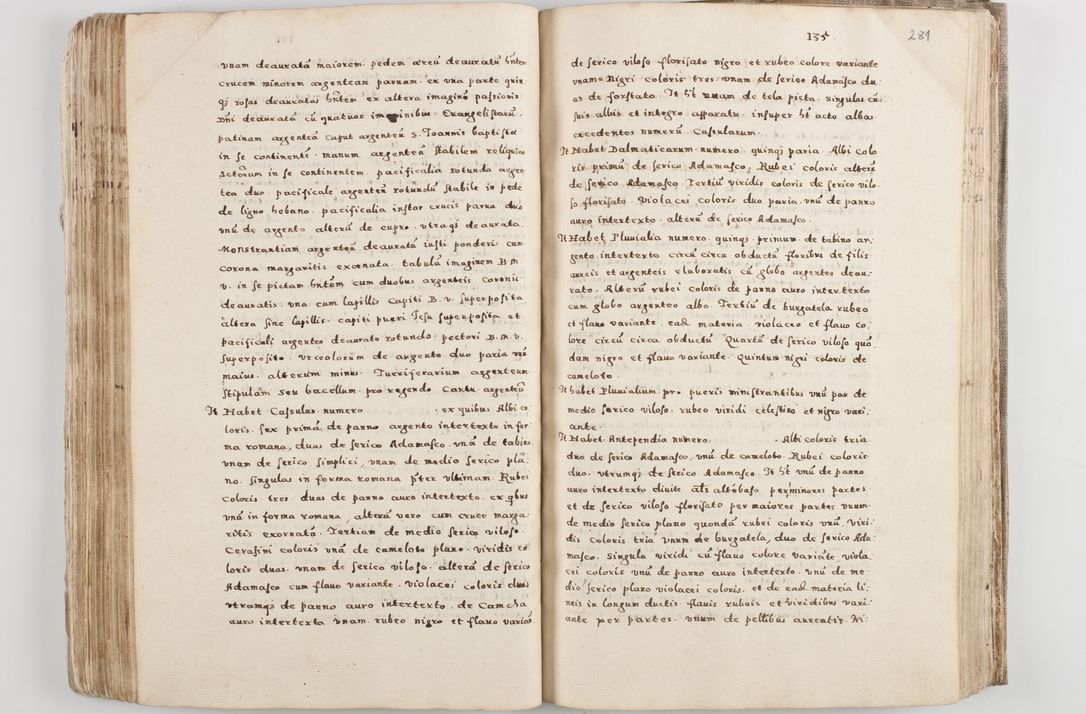 vnam deauratã maiorem. pedem æreũ deauratũ hñtem
crucem minorem argenteam paruam. ex vna parte quin
qȝ rosas deauratas hñtem ex altera imaginẽ passionis
Dñi deauratã cũ quatuor imaginibus Euangelistarũ.
patinam argenteã Caput argenteũ S. Ioannis baptistæ
in se continentẽ. manum argenteã stabilem reliquias
Sctorum in se continentem. pacificalia rotunda argen
tea duo. pacificale argenteũ rotundũ stabile in pede
de ligno hebano. pacificalia instar crucis parua duo
vnũ de argento alterũ de cupro. vtraqȝ deaurata.
Monstrantiam argenteã deauratã iusti ponderis cum
corona margaritis exornata. tabulã imaginem B. M.
v. in se pictam hñtem cum duobus argenteis coronis
deauratis. vna cum lapillis Capiti B. v. superposita
altera sine lapillis. capiti pueri Iesu superposita et
pacificali argenteo deaurato rotundo. pectori B. M. v.
superposito. vrceolorum de argento duo paria vnũ
maius. alterum minus. Turriferarium argenteum
Stipulam seu bacellum. pro regendo Cantu argenteũ
It Habet Casulas numero , ex quibus Albi co
loris. sex primã de panno argento intertexto in for
ma romana, duas de serico Adamasco. vnã de tabino
vnam de serico simplici, vnam de medio serico pla
no. singulas in forma romana pter vltimam. Rubei
Coloris. tres. duas de panno auro intertexto. ex qbus
vnã in forma romana, alterã vero cum cruce marga
ritis exornatã. Tertiam de medio serico viloso.
Cerasini coloris vnã de cameloto plano. viridis co
loris duas. vnam de serico viloso. alterã de serico
Adamasco cum flauo variante. Violacei coloris duas
vtramqȝ de panno auro intertexto. de Camcha
auro intertexta vnam. rubeo nigro et flauo varian
135
281
de serico viloso florisato nigro et rubeo colore variante
vnam. Nigri coloris tres vnam de serico Adamasco du
as de forstato. It ht vnam de tela picta. Singulas cũ
suis albis et integro apparatu. insuper ht octo albas
excedentes numerũ Casularum.
It Habet Dalmaticarum numero. quinqȝ paria. Albi colo
ris primũ de serico Adamasco, Rubei coloris alterũ
de serico Adamasco Tertiũ viridis coloris de serico vilo
so florisato. Violacei coloris duo paria. vnũ de panno
auro intertexto. alterũ de serico Adamasco.
It Habet Pluuialia numero. quinqȝ primum de tabino ar
gento intertexto circũ circa obductũ floribus de filis
aureis et argenteis elaboratis cũ globo argenteo deau
rato. Alterũ rubei coloris de panno auro intertexto
cum globo argenteo albo. Tertiũ de burgatela rubeo
et flauo variante. ead materia. violaceo et flauo co
lore circũ circa obductũ. Quartũ de serico viloso quo
dam nigro et flauo variante. Quintum nigri coloris de
cameloto.
It habet Pluuialium pro pueris ministrantibus vnũ par de
medio serico viloso. rubeo viridi celestino et nigro vari
ante.
It Habet Antependia numero. . Albi coloris tria
duo de serico Adamasco, vnũ de cameloto. Rubei coloris
duo. vtrumqȝ de serico Adamasco. It ht vnũ de panno
auro intertexto diuite als altobaso per minores partes
et de serico viloso florisato per maiores partes vnum.
de medio serico plano quondã rubei coloris vnũ, viri
dis coloris tria vnum de burgatela, duo de serico Ada
masco. Singula viridi cũ flauo colore variãte, viola
cei coloris vnũ de panno auro intertexto. vnũ de me
dio serico plano violacei coloris. et de ead materia li
neis in longum ductis. flauis rubeis et viridibus vari
ante per partes. vnum de pellibus aureatis. Ni